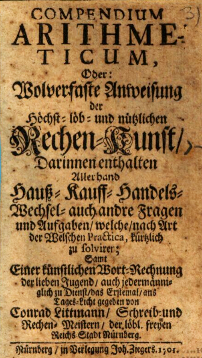 COMPENDIUM
ARITHME-
TICUM,
Oder:
Wolverfaste Anweisung
der
Höchst- löb- und nützlichen
Rechen-Kunst/
Darinnen enthalten
Allerhand
Hauß- Kauff- Handels-
Wechsel- auch andre Fragen
und Aufgaben/ welche/ nach Art
der Welschen Practica, kürtzlich
zu solvirẽ;
Samt
Einer künstlichen Wort-Rechnung
der lieben Jugend/ auch jedermänn-
iglich zu Dienst/ das Erstemal/ ans
Tages-Liecht gegeben von
Conrad Littmann/ Schreib- und
Rechen- Meistern/ der löbl. freyen
Reichs Stadt Nürnberg.
Nürnberg/ in Verlegung Joh. Ziegers. 1701.